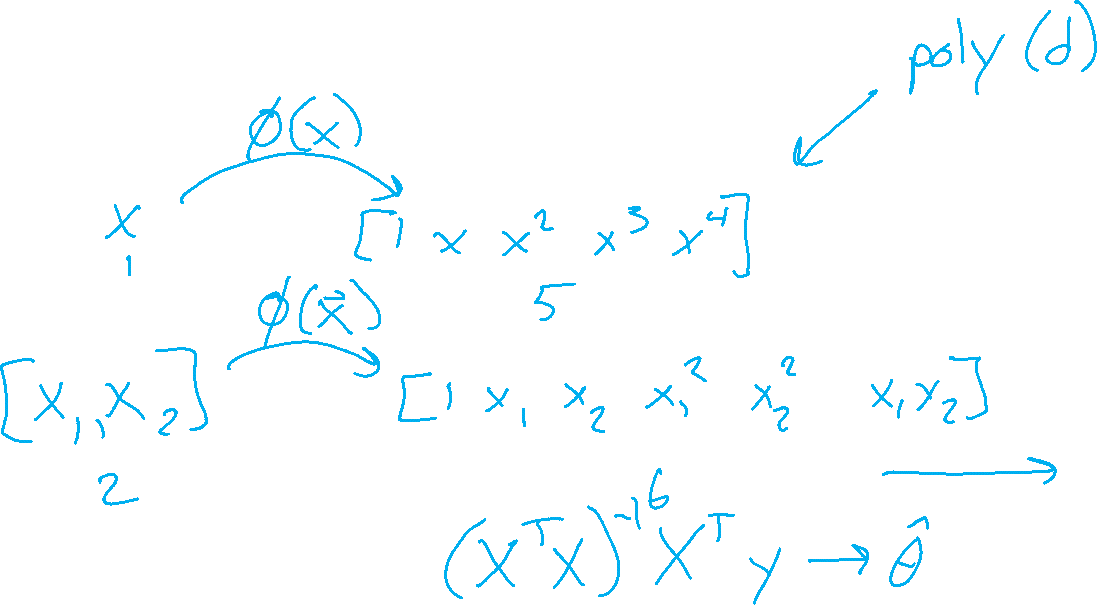 poly (d)
ϕ(x)
x [1 x x² x³ x⁴]
1 5
ϕ(x⃗)
[x₁, x₂] [1 x₁ x₂ x₁² x₂² x₁x₂]
2 6
(XᵀX)⁻¹Xᵀy → θ̂